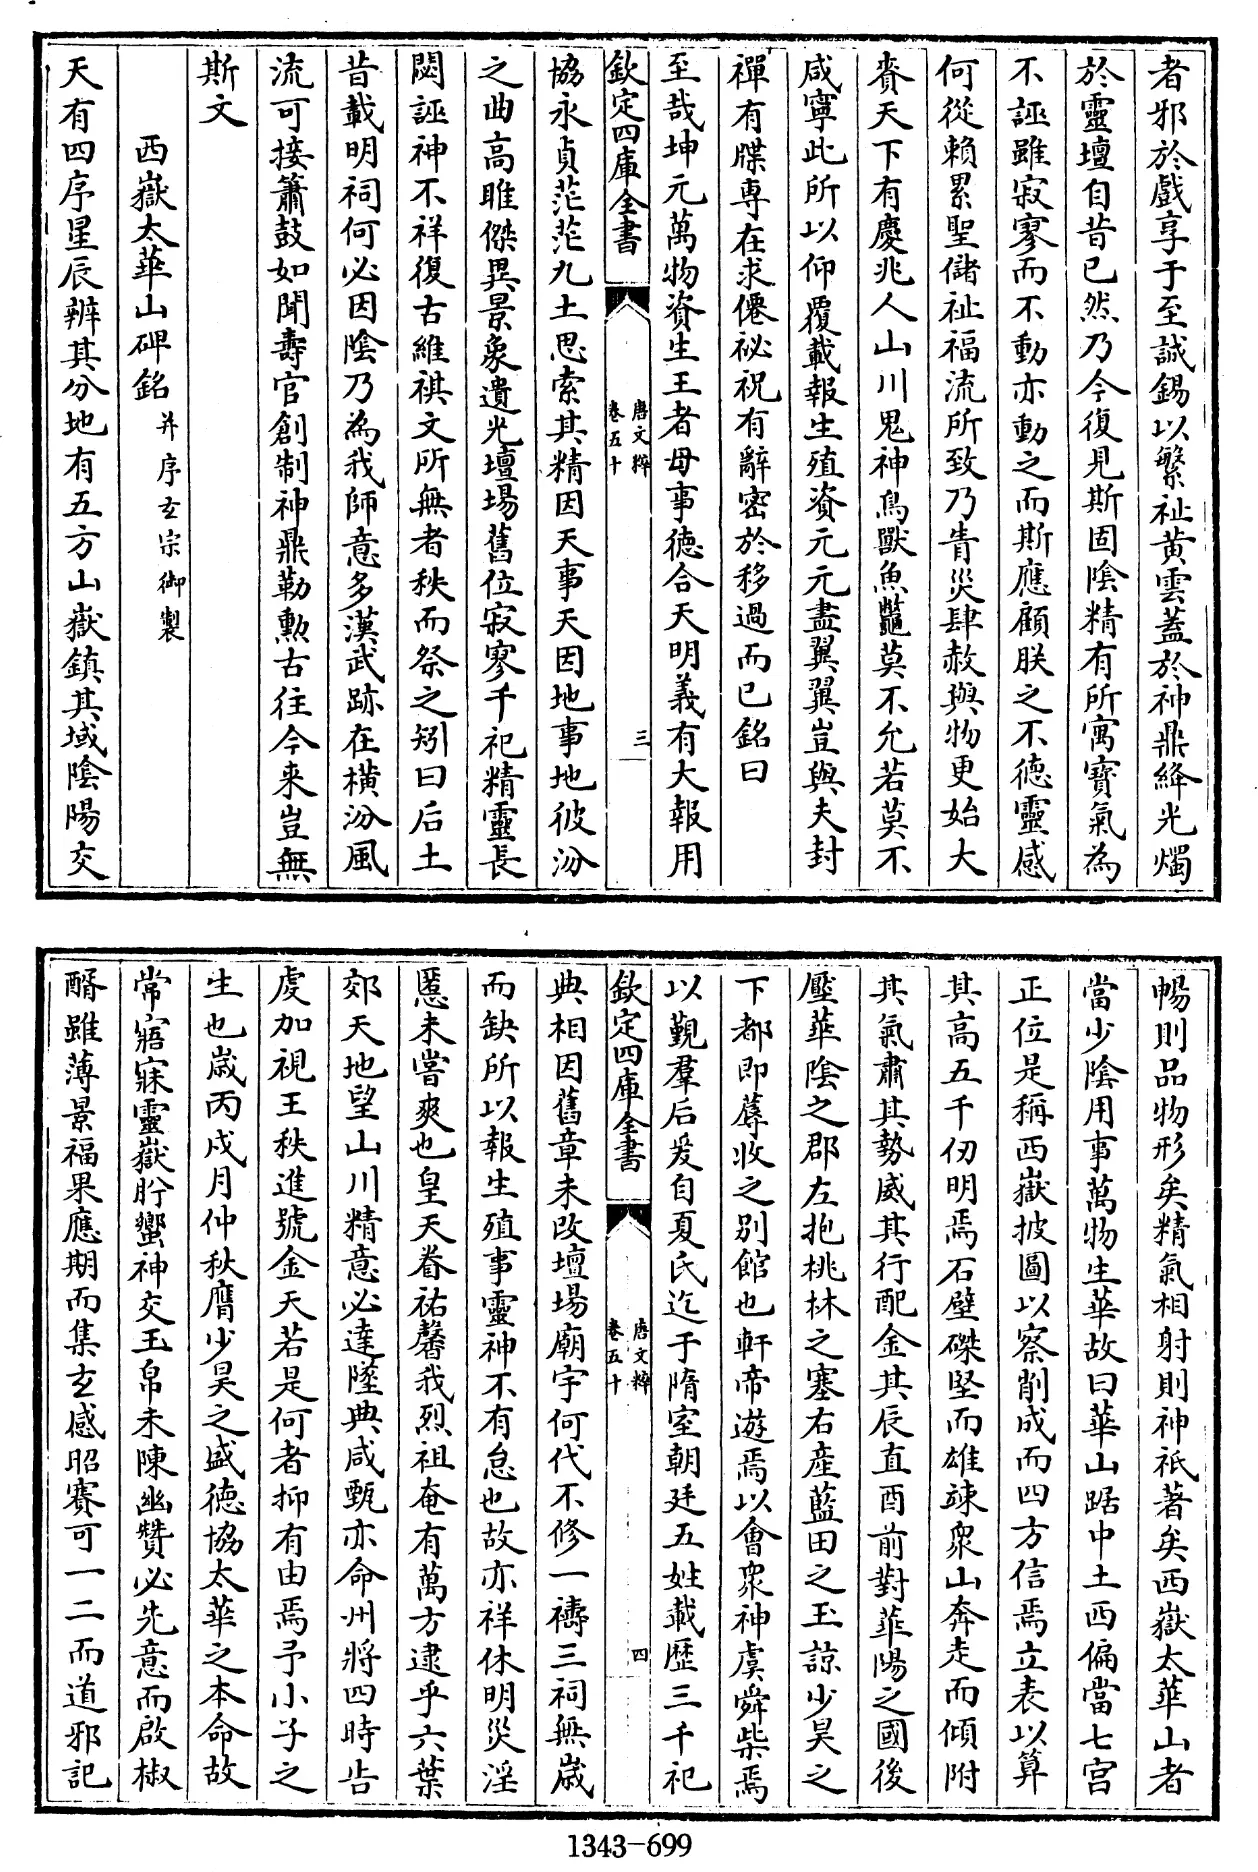 者邪於戲享于至誠錫以繁祉黄雲蓋於神鼎絳光燭
於靈壇自昔已然乃今復見斯固陰精有所寓寳氣為
不誣雖寂寥而不動亦動之而斯應顧朕之不德靈感
何從賴累聖儲祉福流所致乃眚災肆赦與物更始大
賚天下有慶兆人山川鬼神鳥獸魚鼈莫不允若莫不
咸寧此所以仰覆載報生殖資元元盡翼翼豈與夫封
禪有牒專在求僊祕祝有辭密於移過而已銘曰
至哉坤元萬物資生王者母事德合天明義有大報用
欽定四庫全書
唐文粹
卷五十
三
協永貞茫茫九土思索其精因天事天因地事地彼汾
之曲高睢傑異景象遺光壇場舊位寂寥千祀精靈長
閟誣神不祥復古維祺文所無者秩而祭之矧曰后土
昔載明祠何必因陰乃為我師意多漢武跡在橫汾風
流可接簫鼓如聞壽宮創制神鼎勒勲古往今來豈無
斯文
西嶽太華山碑銘 并序玄宗御製
天有四序星辰辨其分地有五方山嶽鎮其域陰陽交
暢則品物形矣精氣相射則神祇著矣西嶽太華山者
當少陰用事萬物生華故曰華山踞中土西偏當七宮
正位是稱西嶽披圖以察削成而四方信焉立表以算
其高五千仞明焉石壁磔堅而雄竦衆山奔走而傾附
其氣肅其勢威其行配金其辰直酉前對華陽之國後
壓華陰之郡左抱桃林之塞右產藍田之玉諒少昊之
下都即蓐收之別館也軒帝遊焉以會衆神虞舜柴焉
以覲羣后爰自夏氏迄于隋室朝廷五姓載歷三千祀
欽定四庫全書
唐文粹
卷五十
四
典相因舊章未改壇場廟宇何代不修一禱三祠無歲
而缺所以報生殖事靈神不有怠也故亦祥休明災淫
慝未嘗爽也皇天眷祐馨我烈祖奄有萬方逮乎六葉
郊天地望山川精意必達墜典咸甄亦命州將四時告
虔加視王秩進號金天若是何者抑有由焉予小子之
生也歲丙戌月仲秋膺少昊之盛德協太華之本命故
常寤寐靈嶽肸蠁神交玉帛未陳幽贊必先意而啟椒
醑雖薄景福果應期而集玄感昭賽可一二而道邪記
1343-699